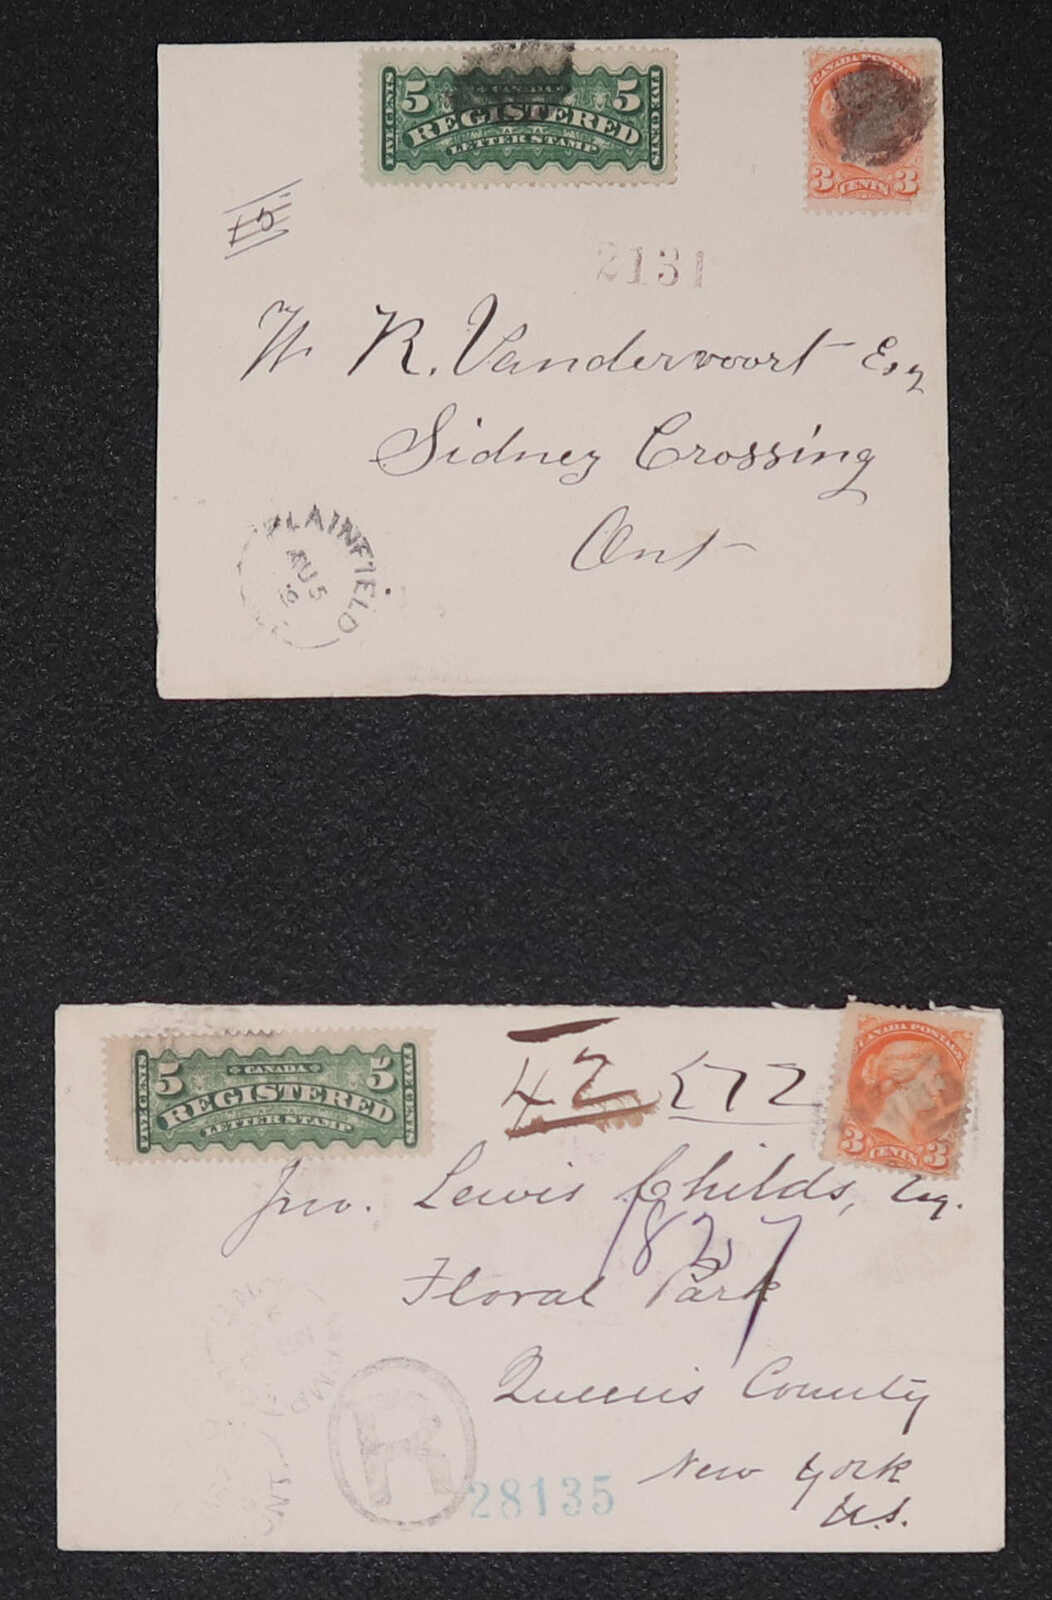 FIVE CENTS 5 CANADA 5 FIVE CENTS
REGISTERED
LETTER STAMP
CANADA POSTAGE
3 CENTS 3
15
2131
W R. Vandervoort Esq
Sidney Crossing
Ont
PLAINFIELD
AU 5
FIVE CENTS 5 CANADA 5 FIVE CENTS
REGISTERED
LETTER STAMP
42 572
CANADA POSTAGE
3 CENTS 3
Jno. Lewis Childs, Esq.
1827
Floral Park
Queens County
New York
U.S.
R
28135